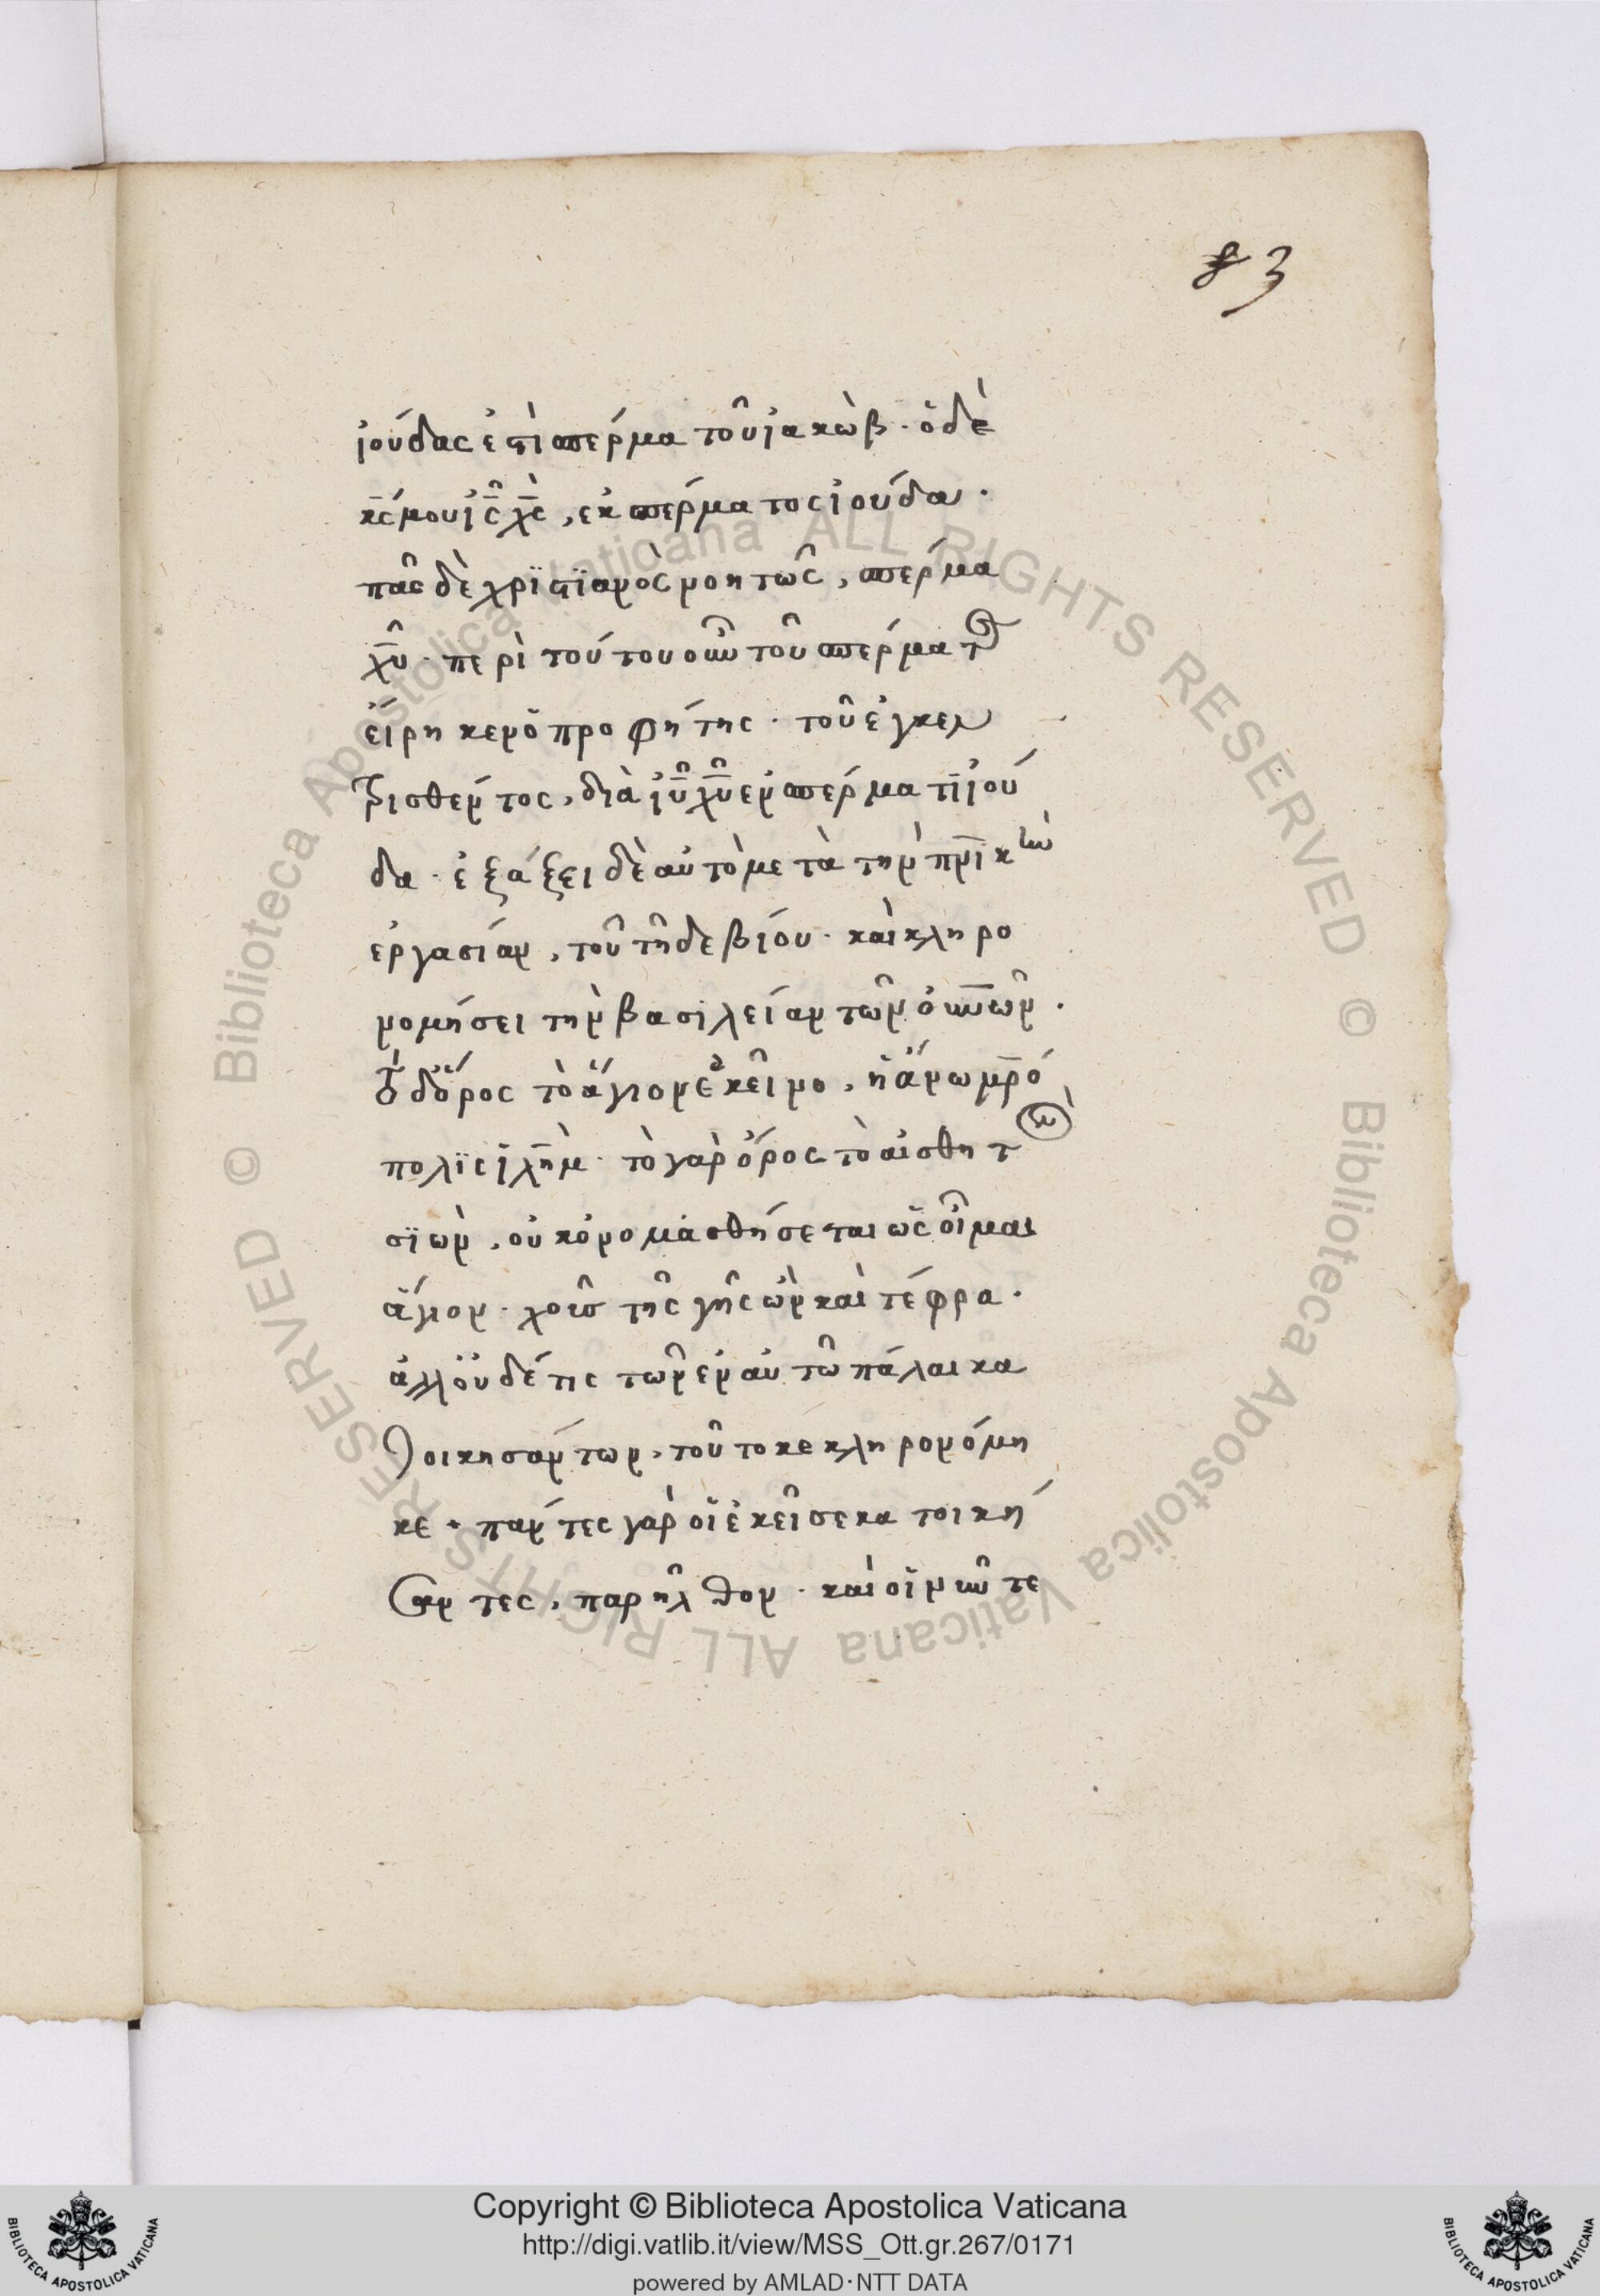 83
ἰούδας ἐστὶ σπέρμα τοῦ ἰακώβ · ὁ δὲ
κ̅ς̅ μου ἰ̅ς̅ χ̅ς̅, ἐκ σπέρματος ἰούδα ·
πᾶς δὲ χρϊστϊανὸς νοητῶς, σπέρμα
χ̅υ̅ · περὶ τούτου οὖν τοῦ σπέρματος
εἴρηκεν ὁ προφήτης · τοῦ ἐγκεν
τρισθέντος, διὰ ἰ̅υ̅ χ̅υ̅ ἐν σπέρματι ἰού
δα · ἐξάξει δὲ αὐτὸ μετὰ τὴν π̅ρ̅ικὴν
ἐργασίαν, τοῦ τῆδε βίου · καὶ κληρο
νομήσει τὴν βασιλείαν τῶν ο̅υ̅ν̅ω̅ν ·
τὸ δὲ ὄρος τὸ ἅγιον ἐκεῖνο, ἡ ἄνω μ̅ρ̅ό
πολϊς ἰ̅λ̅ὴ̅μ · τὸ γὰρ ὄρος τὸ αἰσθητὸν
σϊὼν, οὐκ ὀνομασθήσεται ὡς οἶμαι
ἅγιον · χοῦς τῆς γῆς ὢν καὶ τέφρα ·
ἀλλ' οὐδέ τις τῶν ἐν αὐτῶ πάλαι κα
τοικησάντων, τοῦτο κεκληρονόμη
κε · πάντες γὰρ οἱ ἐκεῖσε κατοικήσ
αντες, παρῆλθον · καὶ οἱ νῦν τε
© Biblioteca Apostolica Vaticana ALL RIGHTS RESERVED © Biblioteca Apostolica Vaticana ALL RIGHTS RESERVED
Copyright © Biblioteca Apostolica Vaticana
http://digi.vatlib.it/view/MSS_Ott.gr.267/0171
powered by AMLAD·NTT DATA
BIBLIOTECA APOSTOLICA VATICANA
BIBLIOTECA APOSTOLICA VATICANA